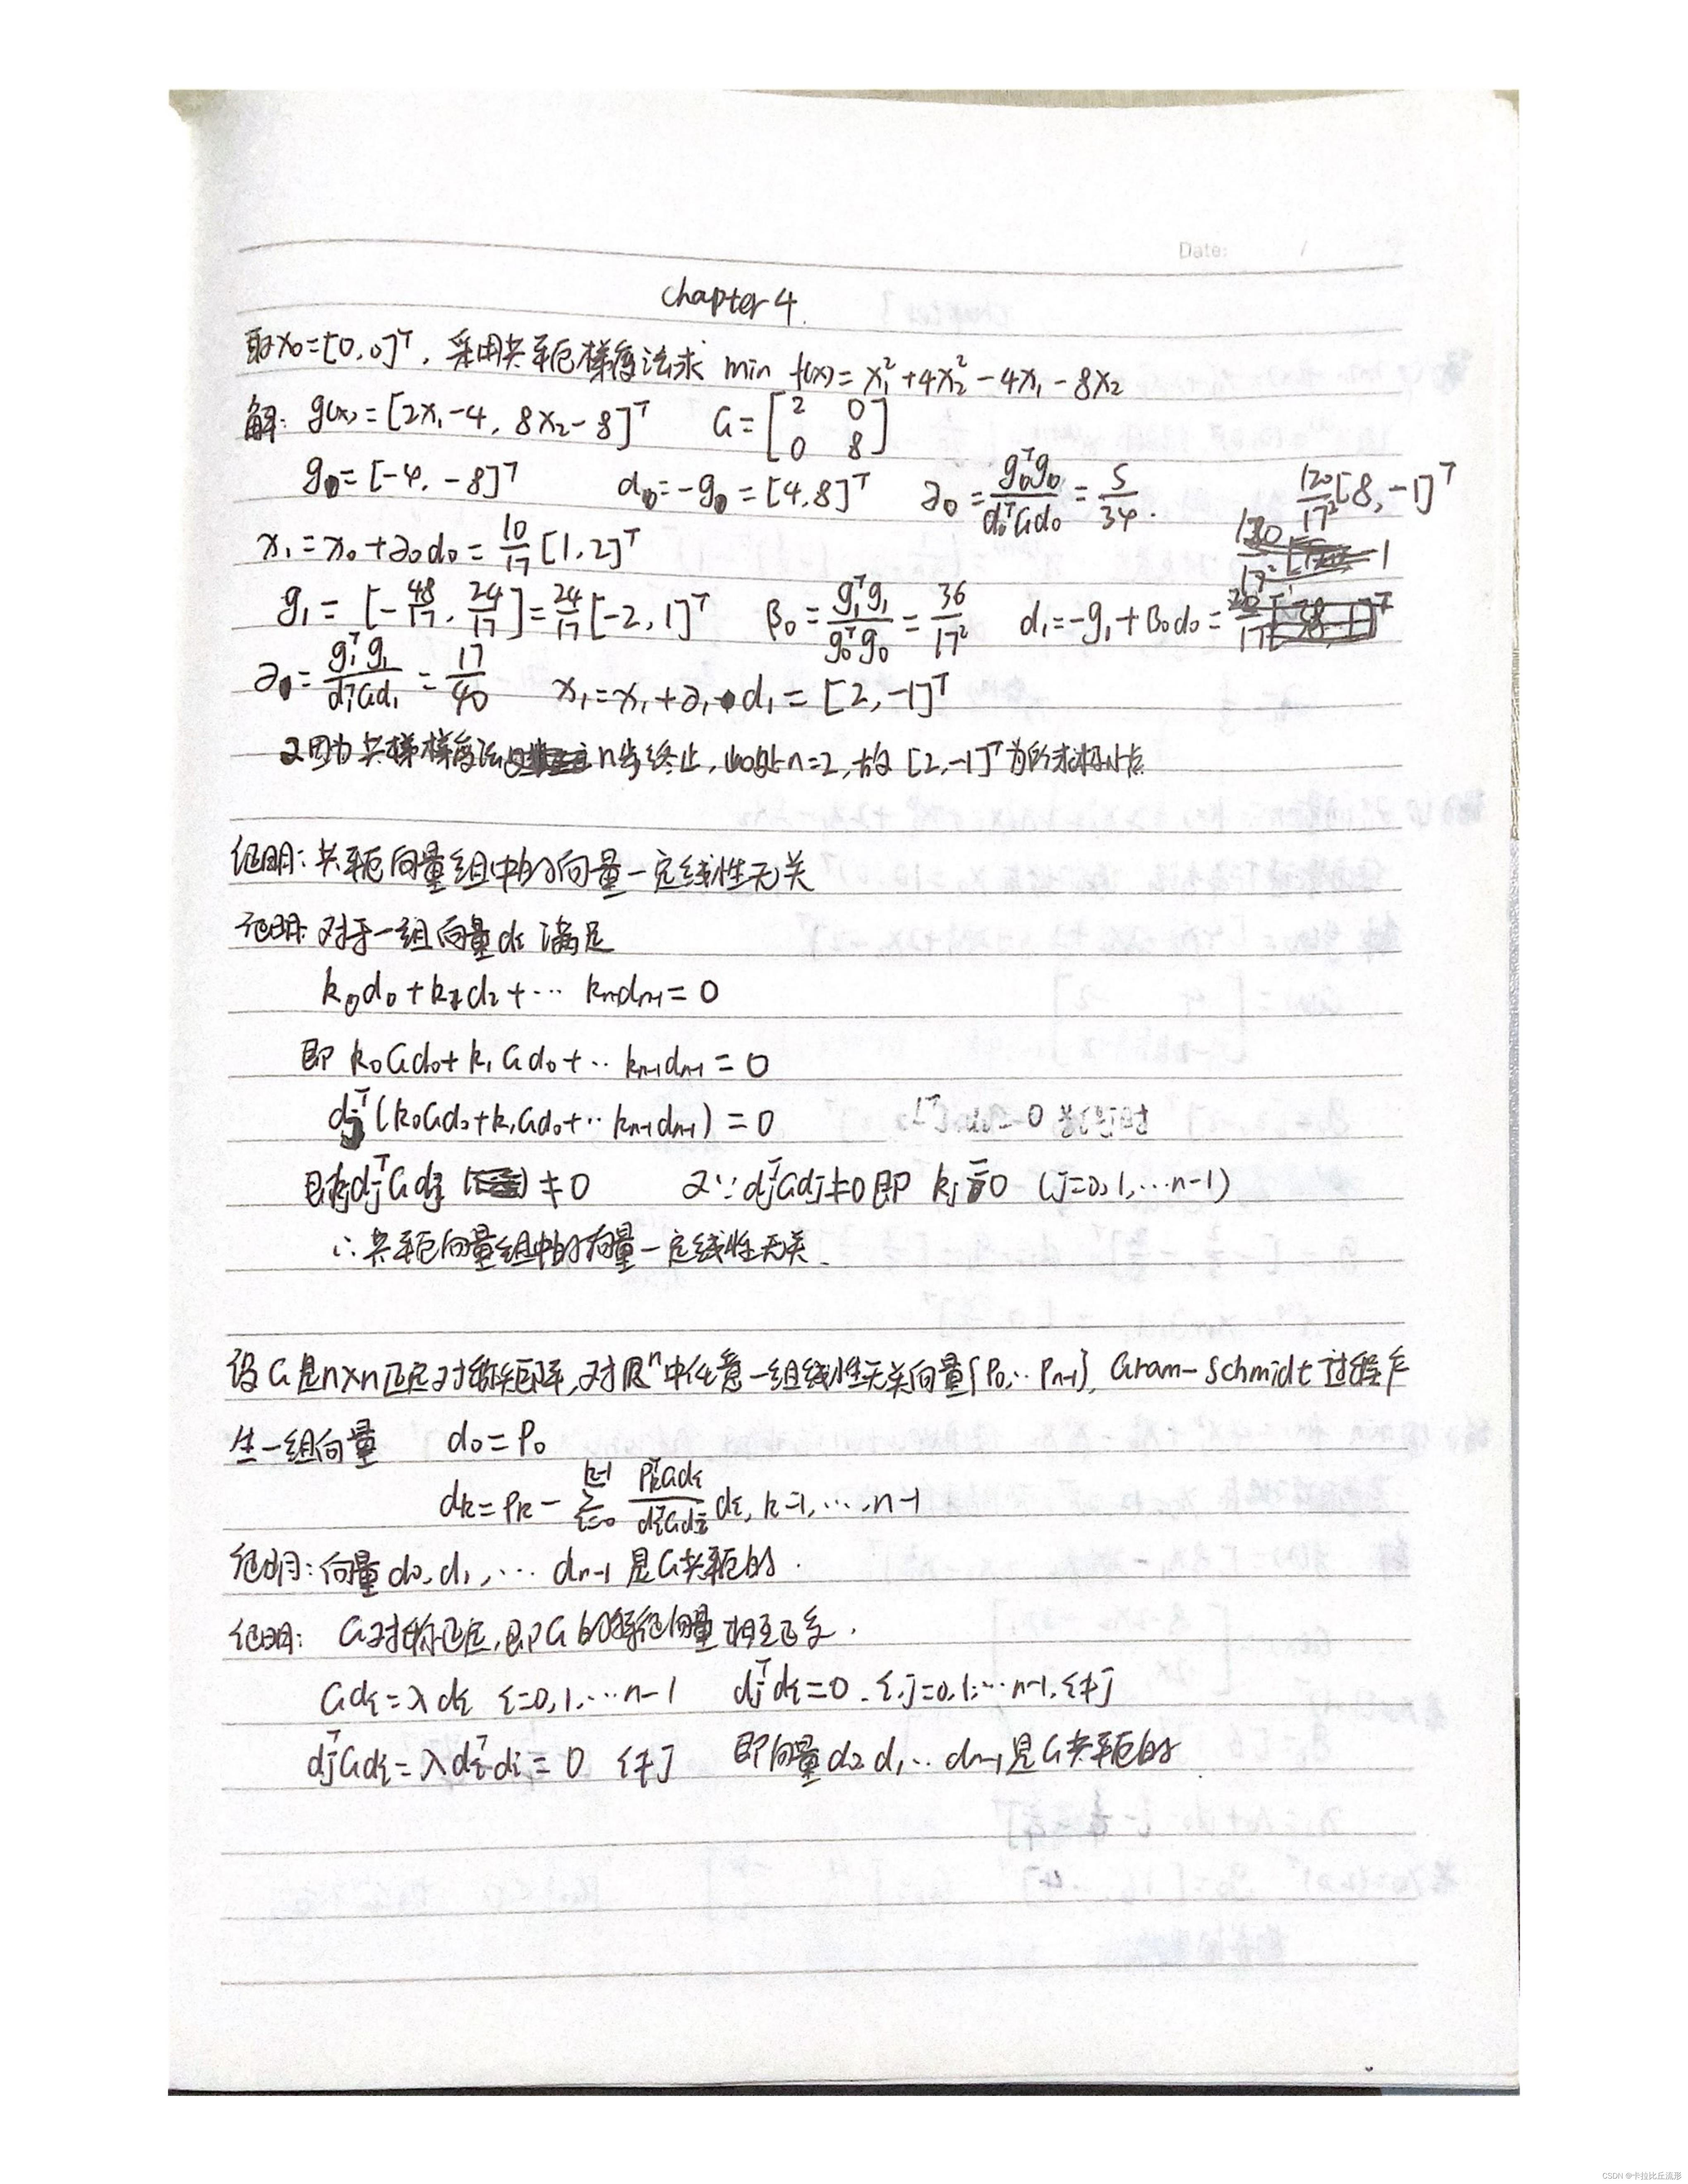 Date: /
Chapter 4.
取x₀=[0,0]ᵀ, 采用共轭梯度法求 min f(x)=x₁²+4x₂²-4x₁-8x₂
解: g(x)=[2x₁-4, 8x₂-8]ᵀ G=[2 0; 0 8]
g₀=[-4,-8]ᵀ d₀=-g₀=[4,8]ᵀ ∂₀=g₀ᵀg₀/d₀ᵀGd₀=5/34. 120/17²[8,-1]ᵀ
x₁=x₀+∂₀d₀=10/17[1,2]ᵀ
g₁=[-48/17, 24/17]=24/17[-2,1]ᵀ β₀=g₁ᵀg₁/g₀ᵀg₀=36/17² d₁=-g₁+β₀d₀=
∂=g₁ᵀg₁/d₁ᵀGd₁=17/40 x₁=x₁+∂₁d₁=[2,-1]ᵀ
又因为共梯梯度法 n步终止, 此处n=2, 故[2,-1]ᵀ为所求极小点
证明: 共轭向量组中的向量一定线性无关
证明: 对于一组向量dᵢ 满足
k₀d₀+k₁d₂+⋯ kₙ₋₁dₙ₋₁=0
即 k₀Gd₀+k₁Gd₀+⋯ kₙ₋₁dₙ₋₁=0
dⱼᵀ(k₀Gd₀+k₁Gd₀+⋯kₙ₋₁dₙ₋₁)=0
即kⱼdⱼᵀGdⱼ ≠0 又∵dⱼᵀGdⱼ≠0即 kⱼ=0 (j=0,1,⋯n-1)
∴共轭向量组中的向量一定线性无关.
设G是n×n正定对称矩阵,对Rⁿ中任意一组线性无关向量{P₀,⋯Pₙ₋₁}, Gram-Schmidt过程产
生一组向量 d₀=P₀
dₖ=Pₖ-∑ᵢ₌₀ᵏ⁻¹ PₖᵀGdᵢ/dᵢᵀGdᵢ dᵢ, k=1,⋯,n-1
证明: 向量d₀,d₁,⋯ dₙ₋₁是G共轭的.
证明: G对称正定,即G的特征向量相互正交.
Gdᵢ=λdᵢ i=0,1,⋯n-1 dⱼᵀdᵢ=0. i,j=0,1,⋯n-1, i≠j
dⱼᵀGdᵢ=λdᵢᵀdᵢ=0 i≠j 即向量d₀ d₁⋯dₙ₋₁是G共轭的.
CSDN @卡拉比丘流形